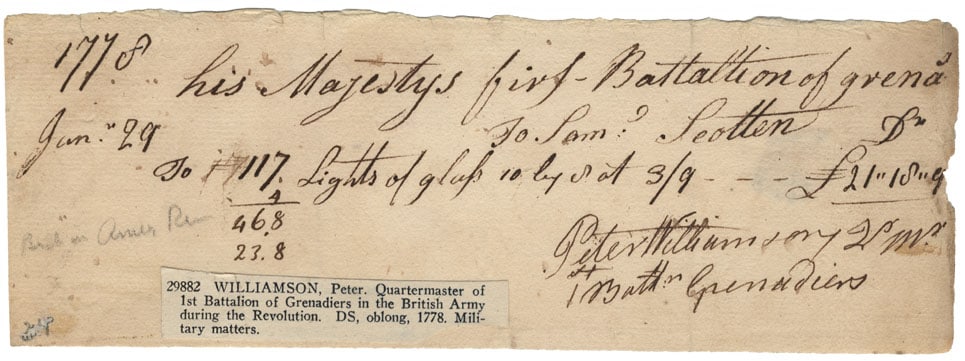 1778
his Majestys first Battaltion of grenad
Janʳ 29
To Samˡ Scotten Dʳ
To 117 Lights of glass 10 by 8 at 3/9 - - - £21"18"9
4
468
23.8
Peter Williamson Qʳ Mʳ
1st Battⁿ Grenadiers
29882 WILLIAMSON, Peter. Quartermaster of
1st Battalion of Grenadiers in the British Army
during the Revolution. DS, oblong, 1778. Mili-
tary matters.